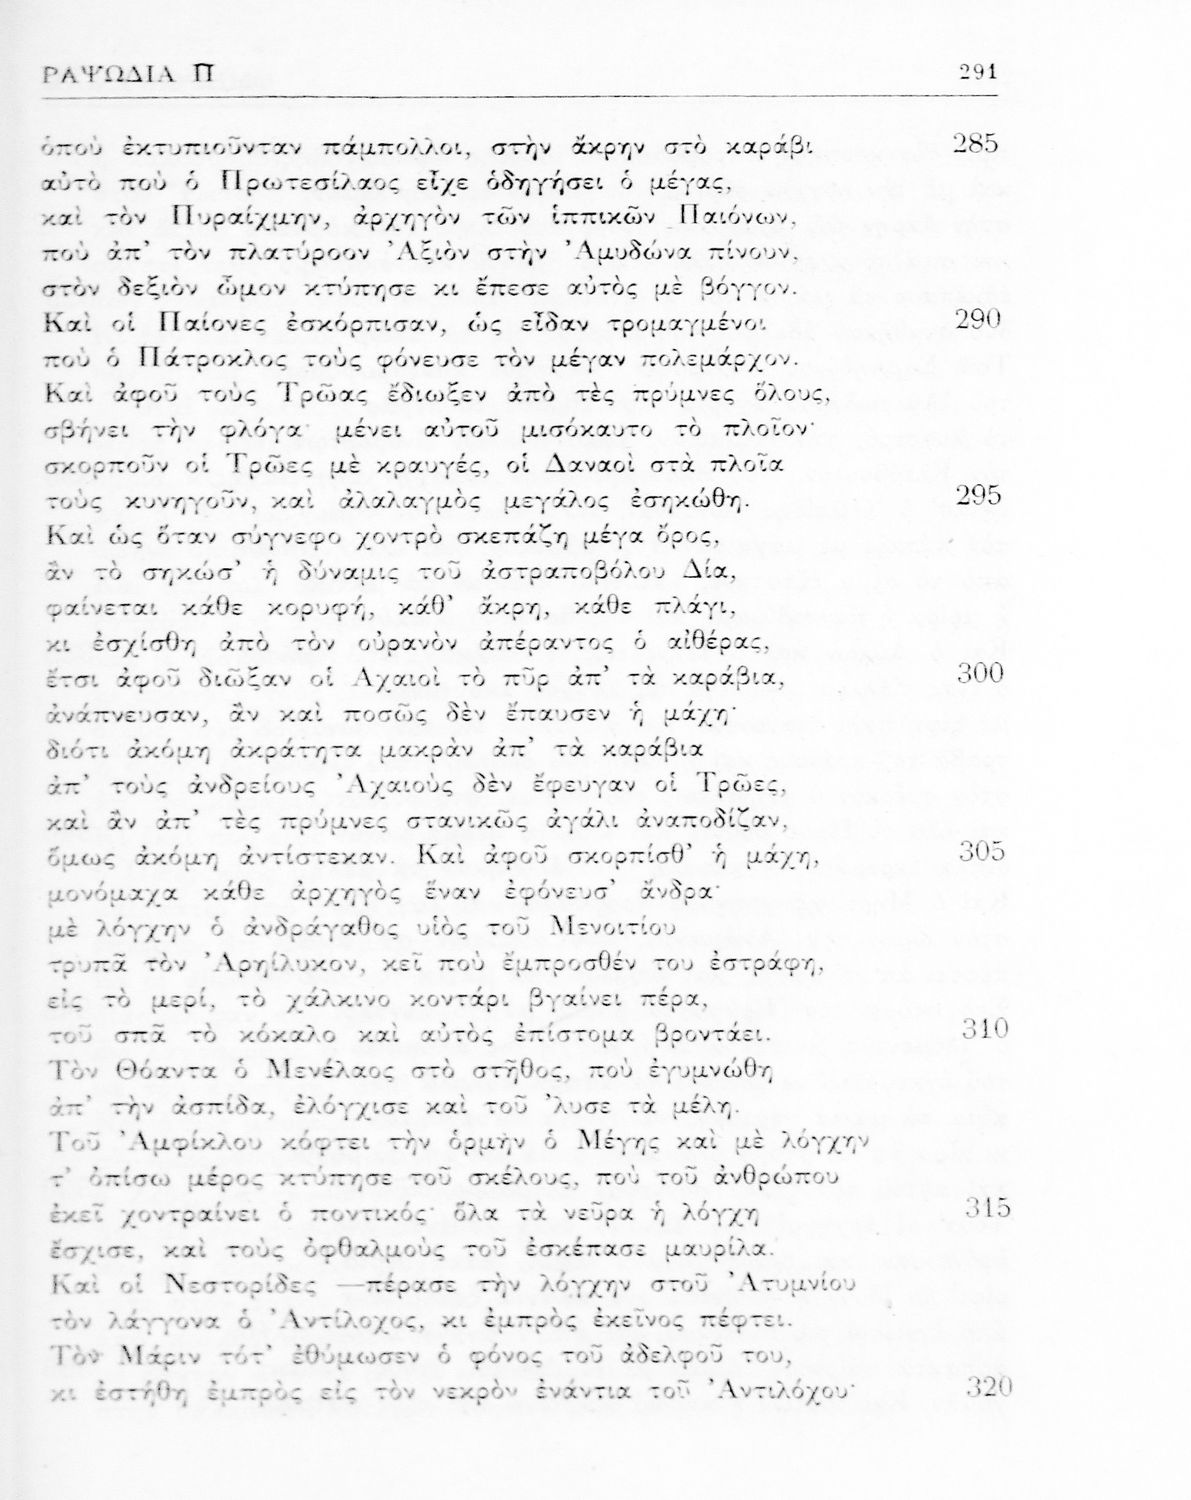 ΡΑΨΩΔΙΑ Π 291
ὁποὺ ἐκτυπιοῦνταν πάμπολλοι, στὴν ἄκρην στὸ καράβι 285
αὐτὸ ποὺ ὁ Πρωτεσίλαος εἶχε ὁδηγήσει ὁ μέγας,
καὶ τὸν Πυραίχμην, ἀρχηγὸν τῶν ἱππικῶν Παιόνων,
ποὺ ἀπ' τὸν πλατύροον Ἀξιὸν στὴν Ἀμυδώνα πίνουν,
στὸν δεξιὸν ὦμον κτύπησε κι ἔπεσε αὐτὸς μὲ βόγγον.
Καὶ οἱ Παίονες ἐσκόρπισαν, ὡς εἶδαν τρομαγμένοι 290
ποὺ ὁ Πάτροκλος τοὺς φόνευσε τὸν μέγαν πολεμάρχον.
Καὶ ἀφοῦ τοὺς Τρῶας ἔδιωξεν ἀπὸ τὲς πρύμνες ὅλους,
σβήνει τὴν φλόγα· μένει αὐτοῦ μισόκαυτο τὸ πλοῖον·
σκορποῦν οἱ Τρῶες μὲ κραυγές, οἱ Δαναοὶ στὰ πλοῖα
τοὺς κυνηγοῦν, καὶ ἀλαλαγμὸς μεγάλος ἐσηκώθη. 295
Καὶ ὡς ὅταν σύγνεφο χοντρὸ σκεπάζῃ μέγα ὄρος,
ἂν τὸ σηκώσ' ἡ δύναμις τοῦ ἀστραποβόλου Δία,
φαίνεται κάθε κορυφή, κάθ' ἄκρη, κάθε πλάγι,
κι ἐσχίσθη ἀπὸ τὸν οὐρανὸν ἀπέραντος ὁ αἰθέρας,
ἔτσι ἀφοῦ διῶξαν οἱ Ἀχαιοὶ τὸ πῦρ ἀπ' τὰ καράβια, 300
ἀνάπνευσαν, ἂν καὶ ποσῶς δὲν ἔπαυσεν ἡ μάχη·
διότι ἀκόμη ἀκράτητα μακρὰν ἀπ' τὰ καράβια
ἀπ' τοὺς ἀνδρείους Ἀχαιοὺς δὲν ἔφευγαν οἱ Τρῶες,
καὶ ἂν ἀπ' τὲς πρύμνες στανικῶς ἀγάλι ἀναποδίζαν,
ὅμως ἀκόμη ἀντίστεκαν. Καὶ ἀφοῦ σκορπίσθ' ἡ μάχη, 305
μονόμαχα κάθε ἀρχηγὸς ἕναν ἐφόνευσ' ἄνδρα·
μὲ λόγχην ὁ ἀνδράγαθος υἱὸς τοῦ Μενοιτίου
τρυπᾶ τὸν Ἀρηίλυκον, κεῖ ποὺ ἔμπροσθέν του ἐστράφη,
εἰς τὸ μερί, τὸ χάλκινο κοντάρι βγαίνει πέρα,
τοῦ σπᾶ τὸ κόκαλο καὶ αὐτὸς ἐπίστομα βροντάει. 310
Τὸν Θόαντα ὁ Μενέλαος στὸ στῆθος, ποὺ ἐγυμνώθη
ἀπ' τὴν ἀσπίδα, ἐλόγχισε καὶ τοῦ 'λυσε τὰ μέλη.
Τοῦ Ἀμφίκλου κόφτει τὴν ὁρμὴν ὁ Μέγης καὶ μὲ λόγχην
τ' ὀπίσω μέρος κτύπησε τοῦ σκέλους, ποὺ τοῦ ἀνθρώπου
ἐκεῖ χοντραίνει ὁ ποντικός· ὅλα τὰ νεῦρα ἡ λόγχη 315
ἔσχισε, καὶ τοὺς ὀφθαλμοὺς τοῦ ἐσκέπασε μαυρίλα.
Καὶ οἱ Νεστορίδες —πέρασε τὴν λόγχην στοῦ Ἀτυμνίου
τὸν λάγγονα ὁ Ἀντίλοχος, κι ἐμπρὸς ἐκεῖνος πέφτει.
Τὸν Μάριν τότ' ἐθύμωσεν ὁ φόνος τοῦ ἀδελφοῦ του,
κι ἐστήθη ἐμπρὸς εἰς τὸν νεκρὸν ἐνάντια τοῦ Ἀντιλόχου· 320